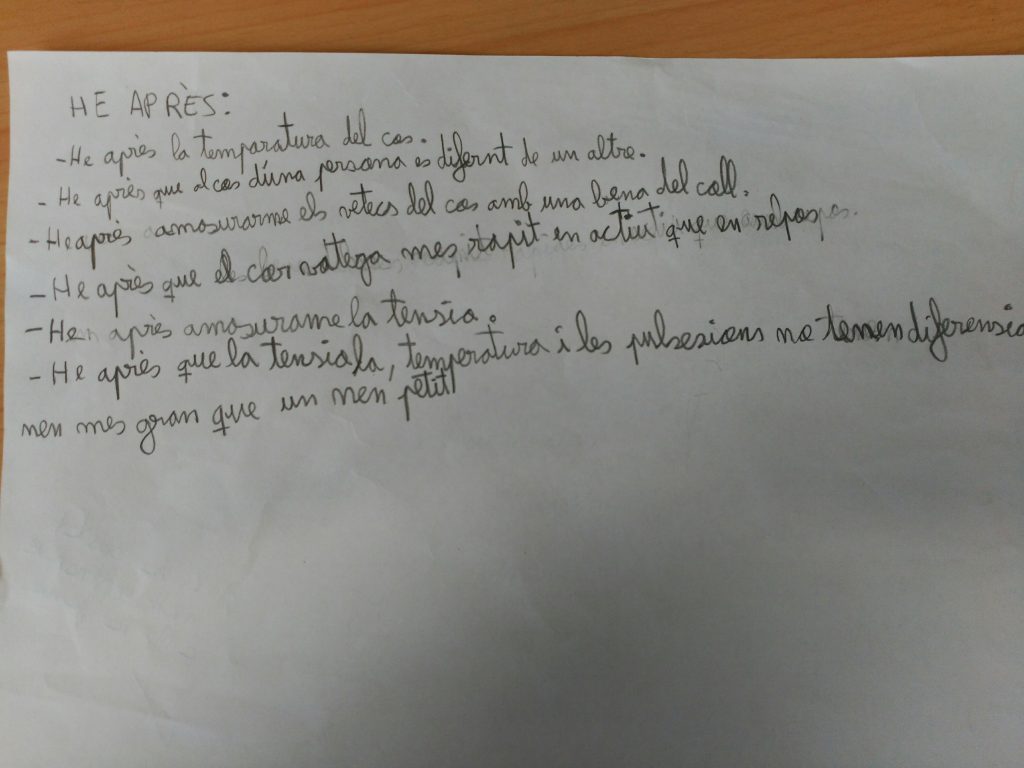 HE APRÈS:
-He après la temparatura del cos.
- He après que el cos d'una persona es difernt de un altre.
-He après amosurarme els vetecs del cos amb una bena del coll.
-He après que el cor vatega mes rapit en actiu que en repos
-He après amosurame la tensia.
- He après que la tensiala, temperatura i les pulsesions no tenen diferensia
nen mes gran que un nen petit